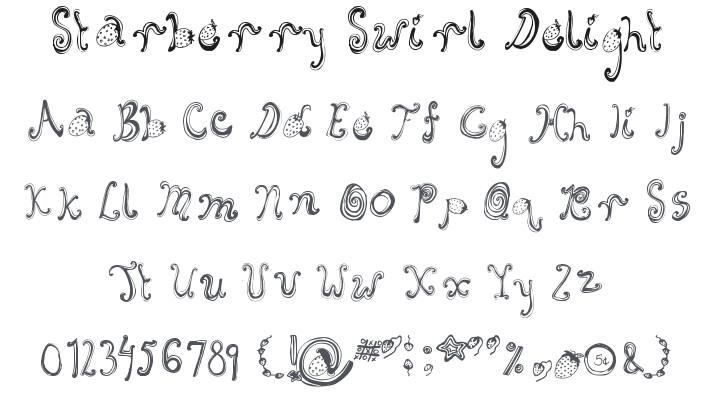 Starberry Swirl Delight
Aa Bb Cc Dd Ee Ff Gg Hh Ii Jj
Kk Ll Mm Nn Oo Pp Qq Rr Ss
Tt Uu Vv Ww Xx Yy Zz
0123456789 (!@#":;*"%,.5¢&)